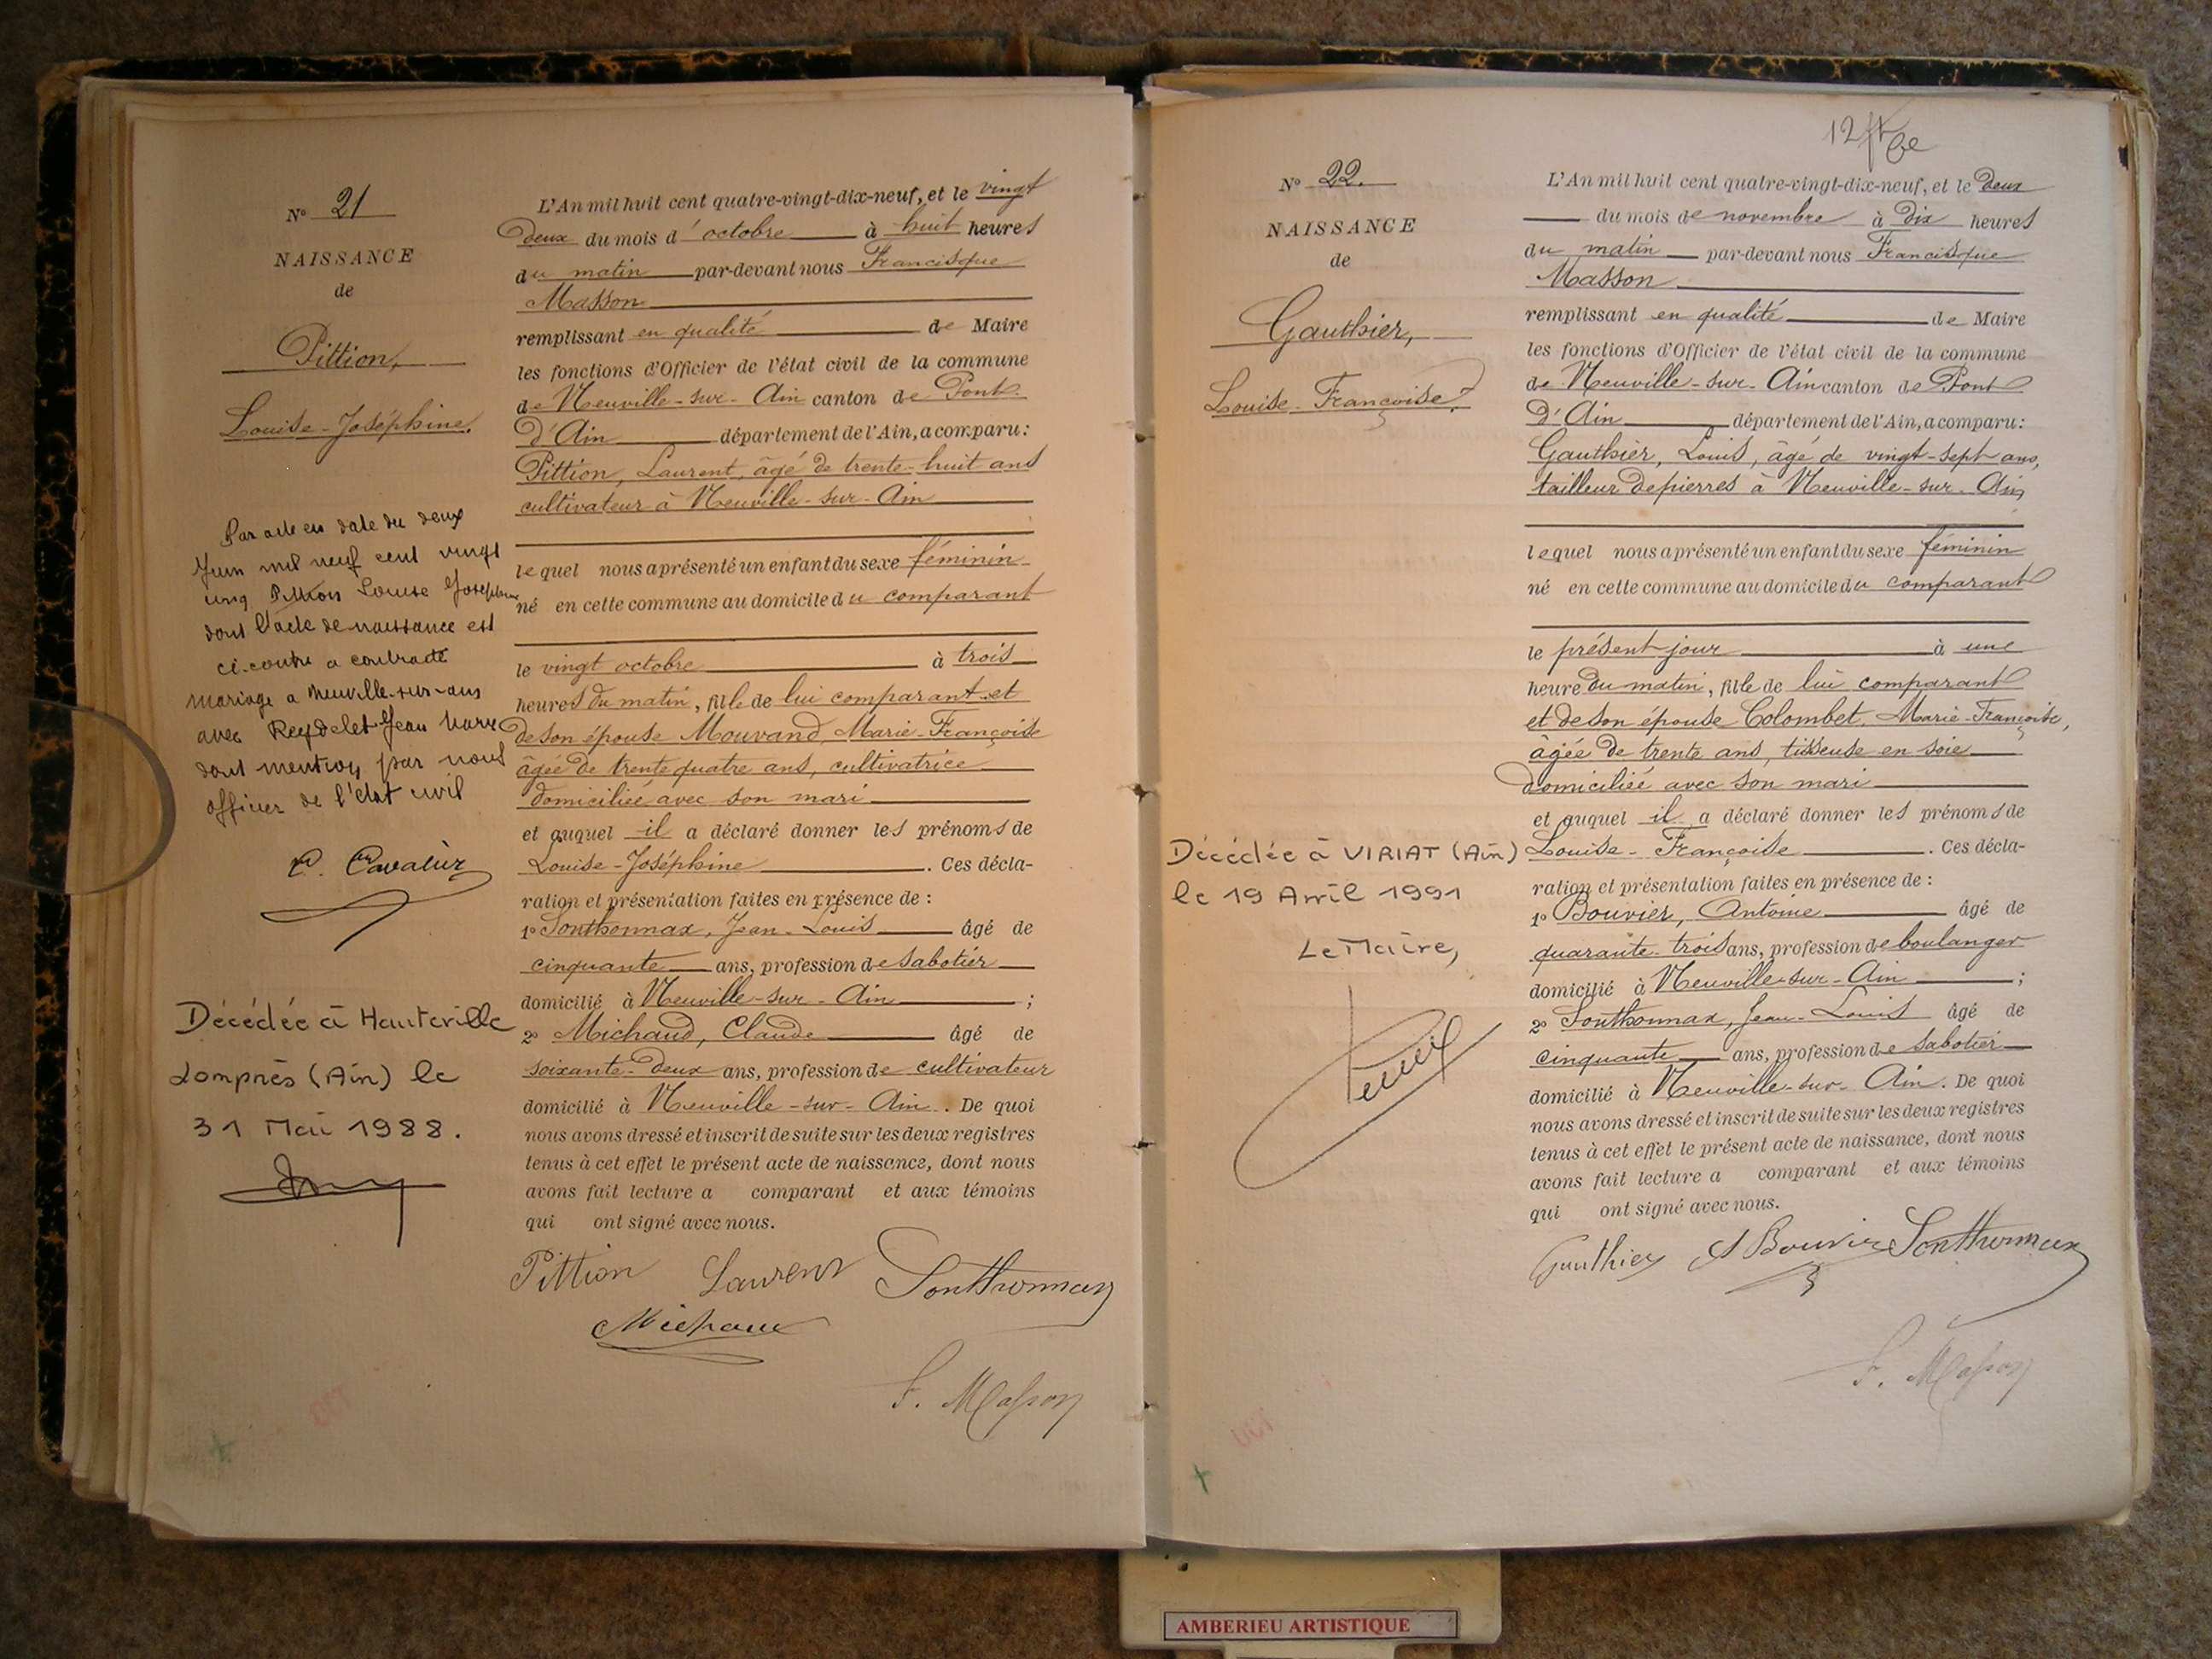 N° 21
NAISSANCE
de
Pittion,
Louise-Joséphine.
Par acte en date du deux
Juin mil neuf cent vingt
cinq Pittion Louise Joséphine
dont l'acte de naissance est
ci-contre a contracté
mariage a Neuville-sur-ain
avec Reydelet Jean Marie
dont mention par nous
officier de l'état civil
Cavalier
Décédée à Hauteville
Lompnès (Ain) le
31 Mai 1988.
L'An mil huit cent quatre-vingt-dix-neuf, et le vingt
deux du mois d'octobre à huit heures
du matin par-devant nous Francisque
Masson
remplissant en qualité de Maire
les fonctions d'Officier de l'état civil de la commune
de Neuville-sur-Ain canton de Pont
d'Ain département de l'Ain, a comparu:
Pittion, Laurent, âgé de trente-huit ans
cultivateur à Neuville-sur-Ain
lequel nous a présenté un enfant du sexe féminin
né en cette commune au domicile du comparant
le vingt octobre à trois
heures du matin, fille de lui comparant et
de son épouse Mouvand, Marie-Françoise
âgée de trente quatre ans, cultivatrice
domiciliée avec son mari
et auquel il a déclaré donner les prénoms de
Louise-Joséphine. Ces décla-
ration et présentation faites en présence de :
1° Sonthonnax, Jean-Louis âgé de
cinquante ans, profession de sabotier
domicilié à Neuville-sur-Ain ;
2° Michaud, Claude âgé de
soixante-deux ans, profession de cultivateur
domicilié à Neuville-sur-Ain. De quoi
nous avons dressé et inscrit de suite sur les deux registres
tenus à cet effet le présent acte de naissance, dont nous
avons fait lecture a comparant et aux témoins
qui ont signé avec nous.
Pittion Laurent Sonthonnax
Michaud
F. Masson
12
N° 22.
NAISSANCE
de
Gauthier,
Louise-Françoise
Décédée à VIRIAT (Ain)
le 19 Avril 1991
Le Maire,
L'An mil huit cent quatre-vingt-dix-neuf, et le deux
du mois de novembre à dix heures
du matin par-devant nous Francisque
Masson
remplissant en qualité de Maire
les fonctions d'Officier de l'état civil de la commune
de Neuville-sur-Ain canton de Pont
d'Ain département de l'Ain, a comparu:
Gauthier, Louis, âgé de vingt-sept ans,
tailleur de pierres à Neuville-sur-Ain
lequel nous a présenté un enfant du sexe féminin
né en cette commune au domicile du comparant
le présent jour à une
heure du matin, fille de lui comparant
et de son épouse Colombet, Marie-Françoise,
âgée de trente ans, tisseuse en soie
domiciliée avec son mari
et auquel il a déclaré donner les prénoms de
Louise-Françoise. Ces décla-
ration et présentation faites en présence de :
1° Bouvier, Antoine âgé de
quarante-trois ans, profession de boulanger
domicilié à Neuville-sur-Ain ;
2° Sonthonnax, Jean-Louis âgé de
cinquante ans, profession de sabotier
domicilié à Neuville-sur-Ain. De quoi
nous avons dressé et inscrit de suite sur les deux registres
tenus à cet effet le présent acte de naissance, dont nous
avons fait lecture a comparant et aux témoins
qui ont signé avec nous.
Gauthier A Bouvier Sonthonnax
F. Masson
AMBERIEU ARTISTIQUE